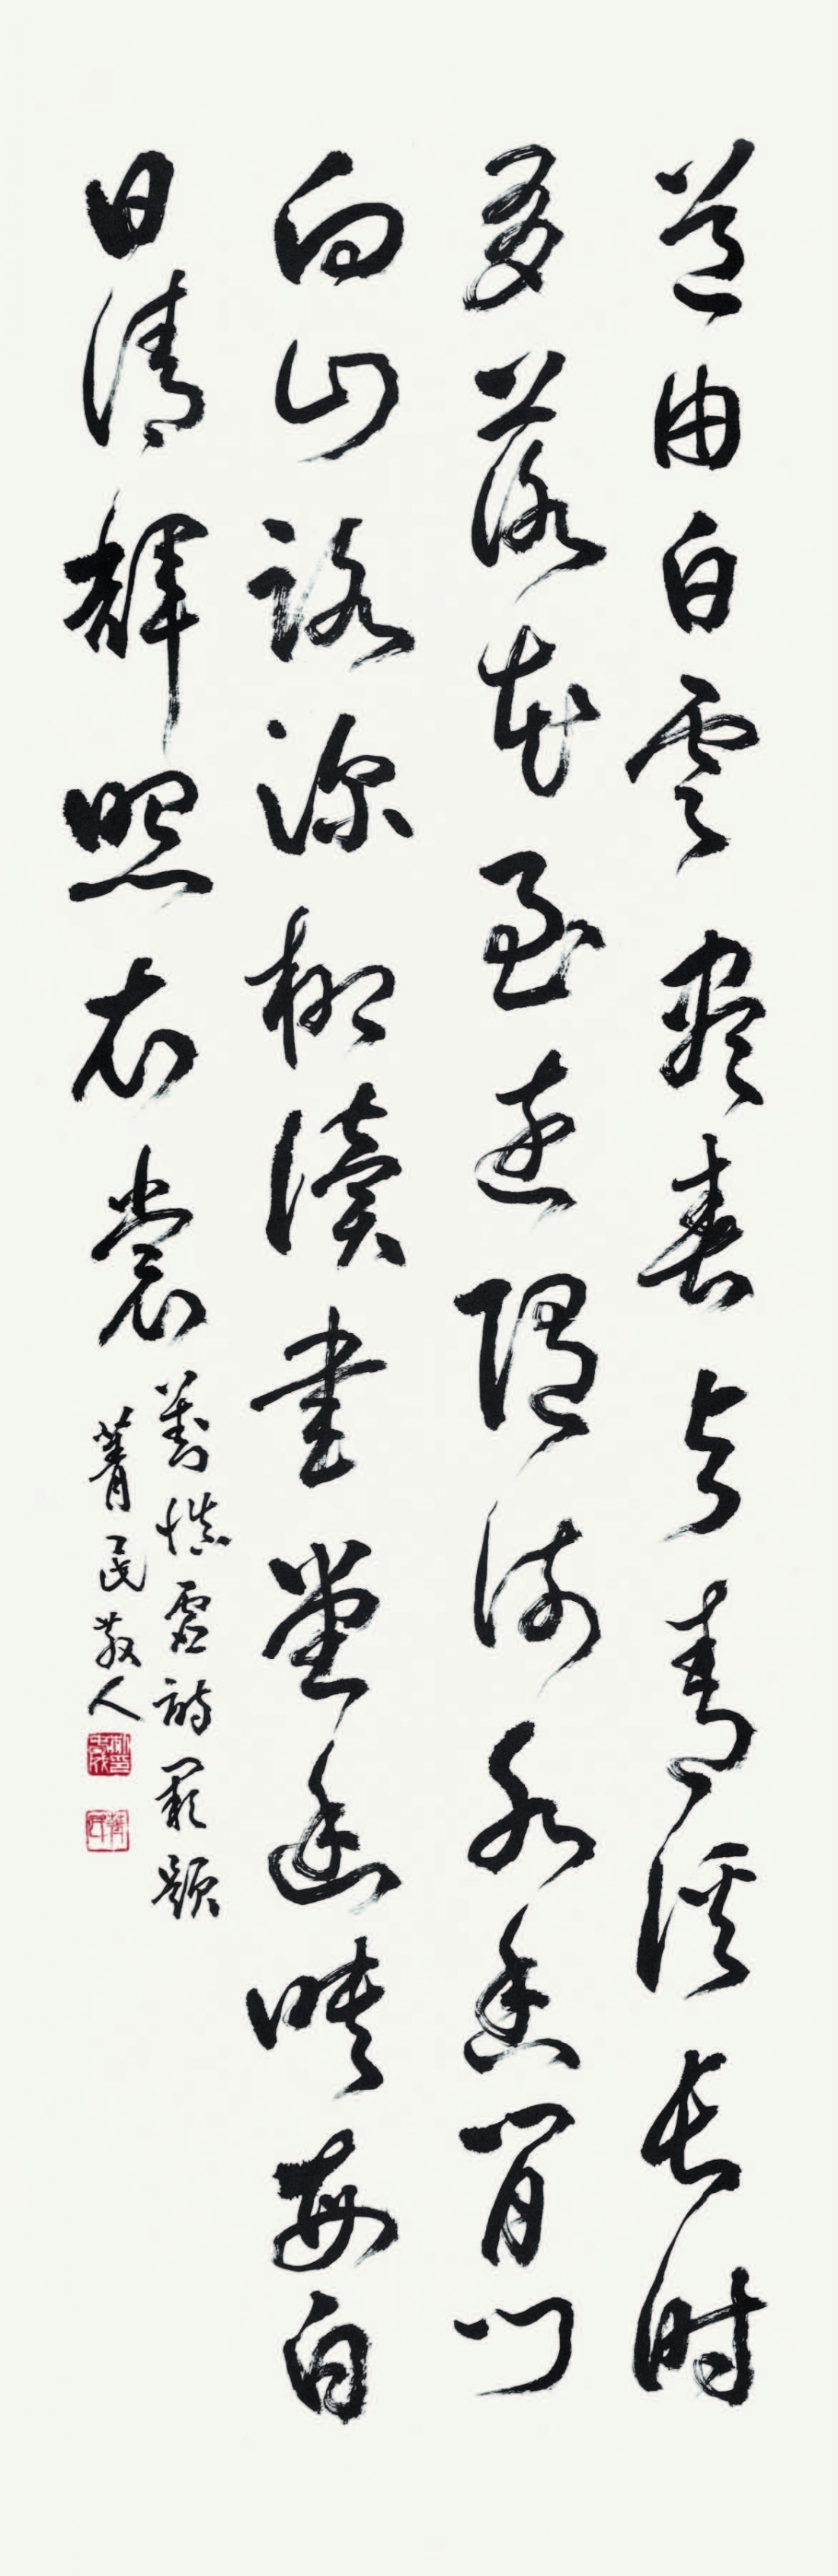 道由白雲盡春与青溪長时
有落花至遠随流水香閒門
向山路深柳讀書堂幽映每白
日清輝照衣裳
劉慎虛詩闕題
菁民散人